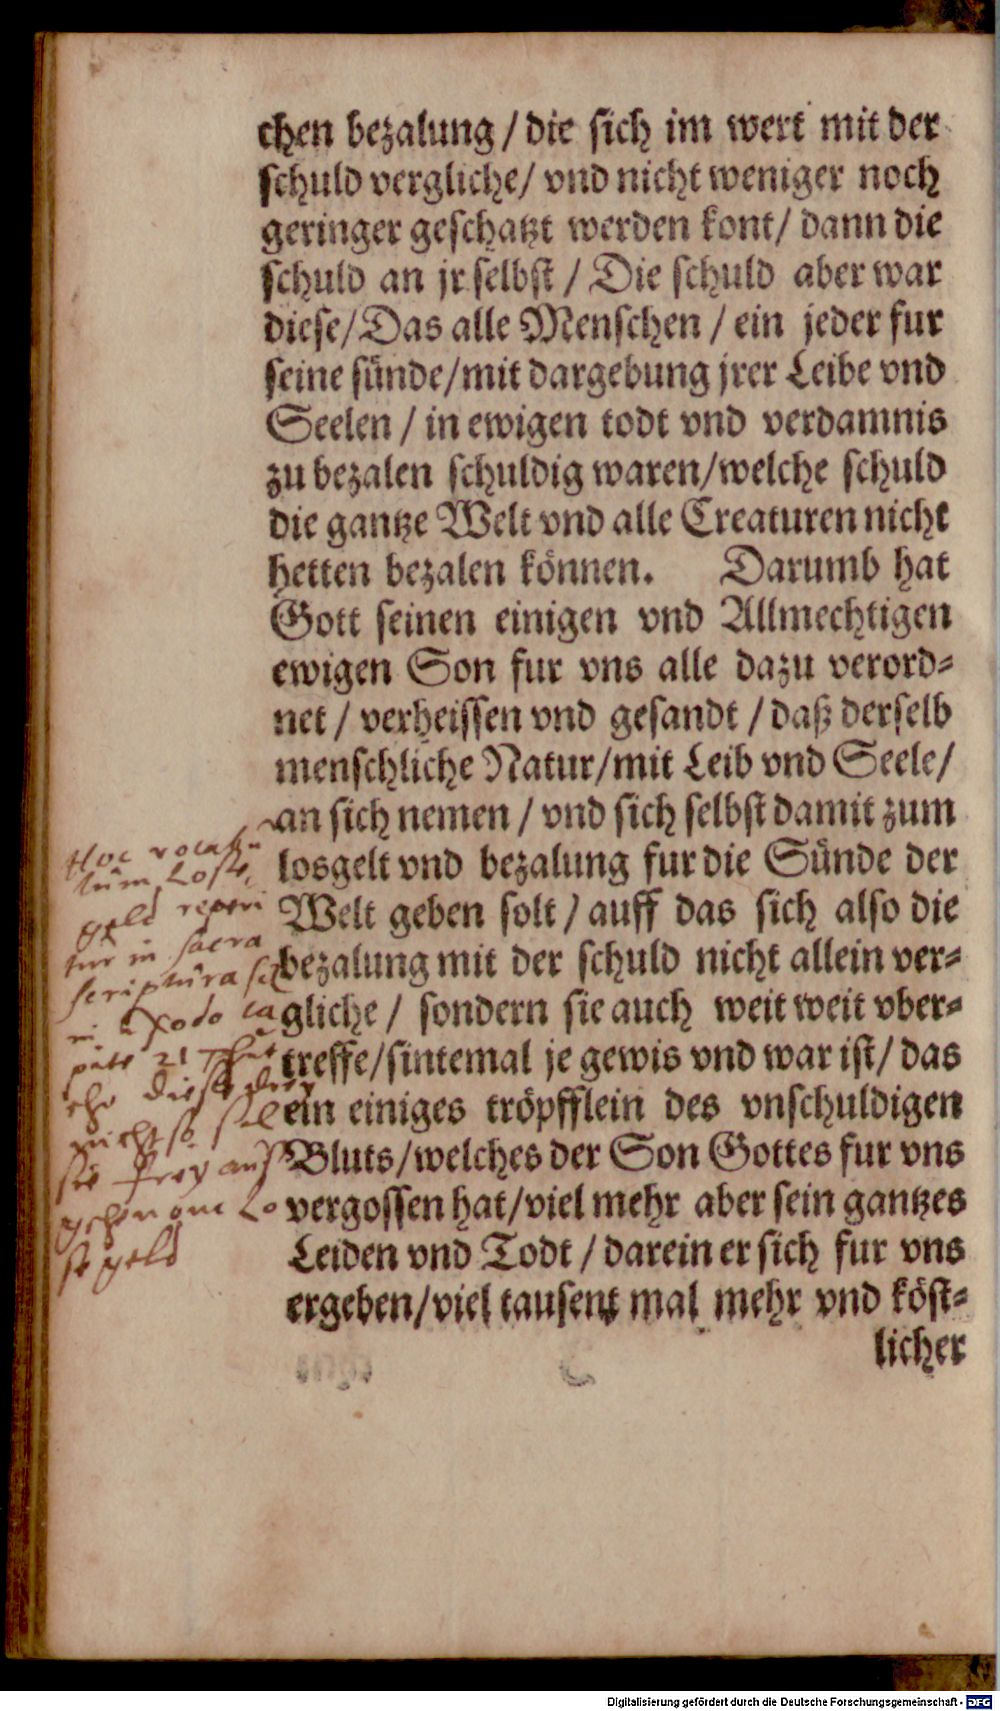 chen bezalung / die sich im wert mit der
schuld vergliche/ vnd nicht weniger noch
geringer geschatzt werden kont/ dann die
schuld an jr selbst / Die schuld aber war
diese/Das alle Menschen / ein jeder fur
seine sünde/mit dargebung jrer Leibe vnd
Seelen / in ewigen todt vnd verdamnis
zu bezalen schuldig waren/welche schuld
die gantze Welt vnd alle Creaturen nicht
hetten bezalen können. Darumb hat
Gott seinen einigen vnd Allmechtigen
ewigen Son fur vns alle dazu verord-
net / verheissen vnd gesandt / daß derselb
menschliche Natur/mit Leib vnd Seele/
an sich nemen / vnd sich selbst damit zum
losgelt vnd bezalung fur die Sünde der
Welt geben solt / auff das sich also die
bezalung mit der schuld nicht allein ver-
gliche / sondern sie auch weit weit vber-
treffe/sintemal je gewis vnd war ist/ das
ein einiges tröpfflein des vnschuldigen
Bluts/welches der Son Gottes fur vns
vergossen hat/viel mehr aber sein gantzes
Leiden vnd Todt / darein er sich fur vns
ergeben/viel tausent mal mehr vnd köst-
licher
Hoc vocabu
lum Lose
geld reperi
tur in sacra
scriptura scz
in Exodo ca
pite 21 Thut
ehr diese drey
nicht so sol
sie frey auß
gehen one Lo
segeld
Digitalisierung gefördert durch die Deutsche Forschungsgemeinschaft - DFG